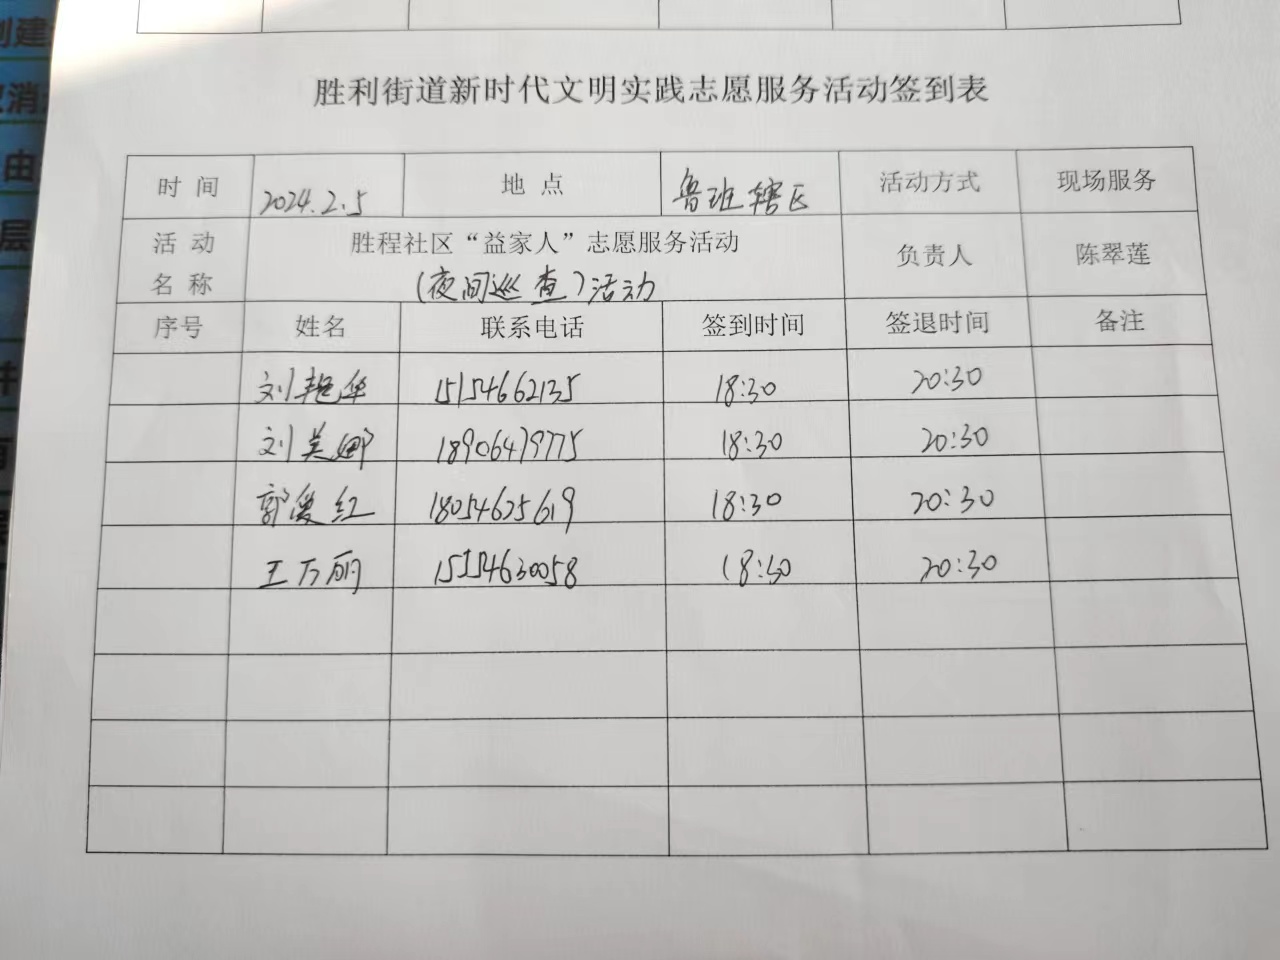 胜利街道新时代文明实践志愿服务活动签到表
时 间 2024.2.5 地 点 鲁班辖区 活动方式 现场服务
活 动 名 称 胜程社区“益家人”志愿服务活动 负责人 陈翠莲
(夜间巡查)活动
序号 姓名 联系电话 签到时间 签退时间 备注
刘艳华 15154662135 18:30 20:30
刘美娜 18906479775 18:30 20:30
郭爱红 18054625619 18:30 20:30
王万丽 15154630058 18:30 20:30
创建
消
由
层
件